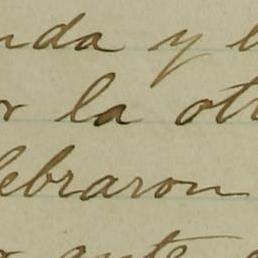 nda y l
r la ot
lebraron
ante